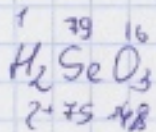 1 79 16
H₂SeO₃
2+79+48